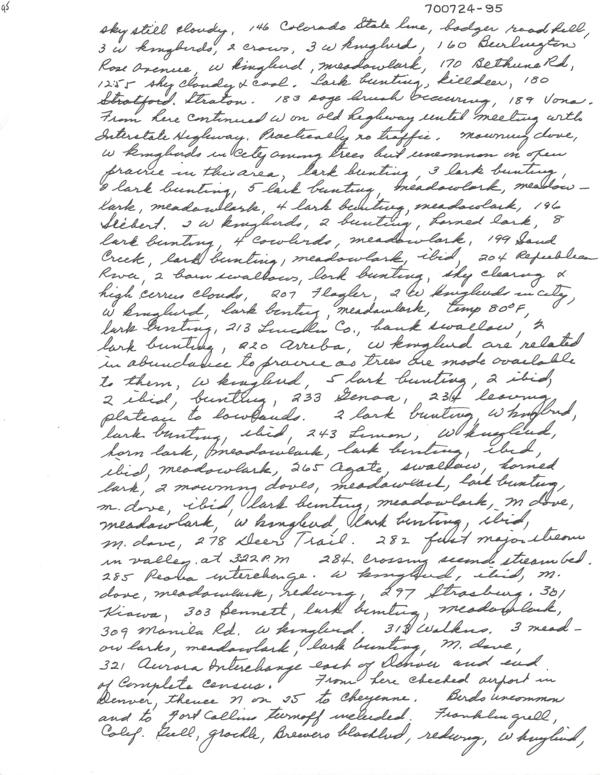 700724-95
sky still cloudy, 146 Colorado State line, badger road kill,
3 W kingbirds, 2 crows, 3 W kingbird, 160 Burlington
Rose Avenue, W kingbird, meadowlark, 170 Bethune Rd,
1255 sky cloudy & cool. lark bunting, killdeer, 180
Stratford. Straton. 183 sage brush occuring, 189 Vona.
From here continued W on old highway until meeting with
Interstate Highway. Practically no traffic. mourning dove,
W kingbirds in city among trees but uncommon in open
prairie in this area, lark bunting, 3 lark bunting,
8 lark bunting, 5 lark bunting, meadowlark, meadow-
lark, meadowlark, 4 lark bunting, meadowlark, 196
Seibert. 2 W kingbirds, 2 bunting, horned lark, 8
lark bunting, 4 cowbirds, meadowlark, 199 Sand
Creek, lark bunting, meadowlark, ibid, 204 Republican
River, 2 barn swallows, lark bunting, sky clearing &
high cerrus clouds, 207 Flagler, 2 W kingbird in city,
W kingbird, lark bunting, meadowlark, temp 80°F,
lark bunting, 213 Lincoln Co., bank swallow, 2
lark bunting, 220 Arriba, W kingbird are related
in abundance to prairie as trees are made available
to them, W kingbird, 5 lark bunting, 2 ibid,
2 ibid, bunting, 233 Genoa, 234 leaving
plateau to lowlands. 2 lark bunting, W kingbird,
lark bunting, ibid, 243 Limon, W kingbird,
horn lark, meadowlark, lark bunting, ibid,
ibid, meadowlark, 265 Agate, swallow, horned
lark, 2 mourning doves, meadowlark, lark bunting,
m. dove, ibid, lark bunting, meadowlark, m dove,
meadowlark, W kingbird, lark bunting, ibid,
m. dove, 278 Deer Trail. 282 first major stream
in valley at 322 P.M 284 crossing second stream bed.
285 Peoria interchange. W kingbird, ibid, m.
dove, meadowlark, redwing, 297 Strasburg. 301
Kiowa, 303 Bennett, lark bunting, meadowlark,
309 Manila Rd. W kingbird. 313 Watkins. 3 mead-
ow larks, meadowlark, lark bunting, M. dove,
321 Aurora Interchange east of Denver and end
of Complete census. From here checked airport in
Denver, thence N on 25 to Cheyenne. Birds uncommon
and to Fort Collins turnoff included. Franklin gull,
Calif. Gull, grackle, Brewers blackbird, redwing, W kingbird,